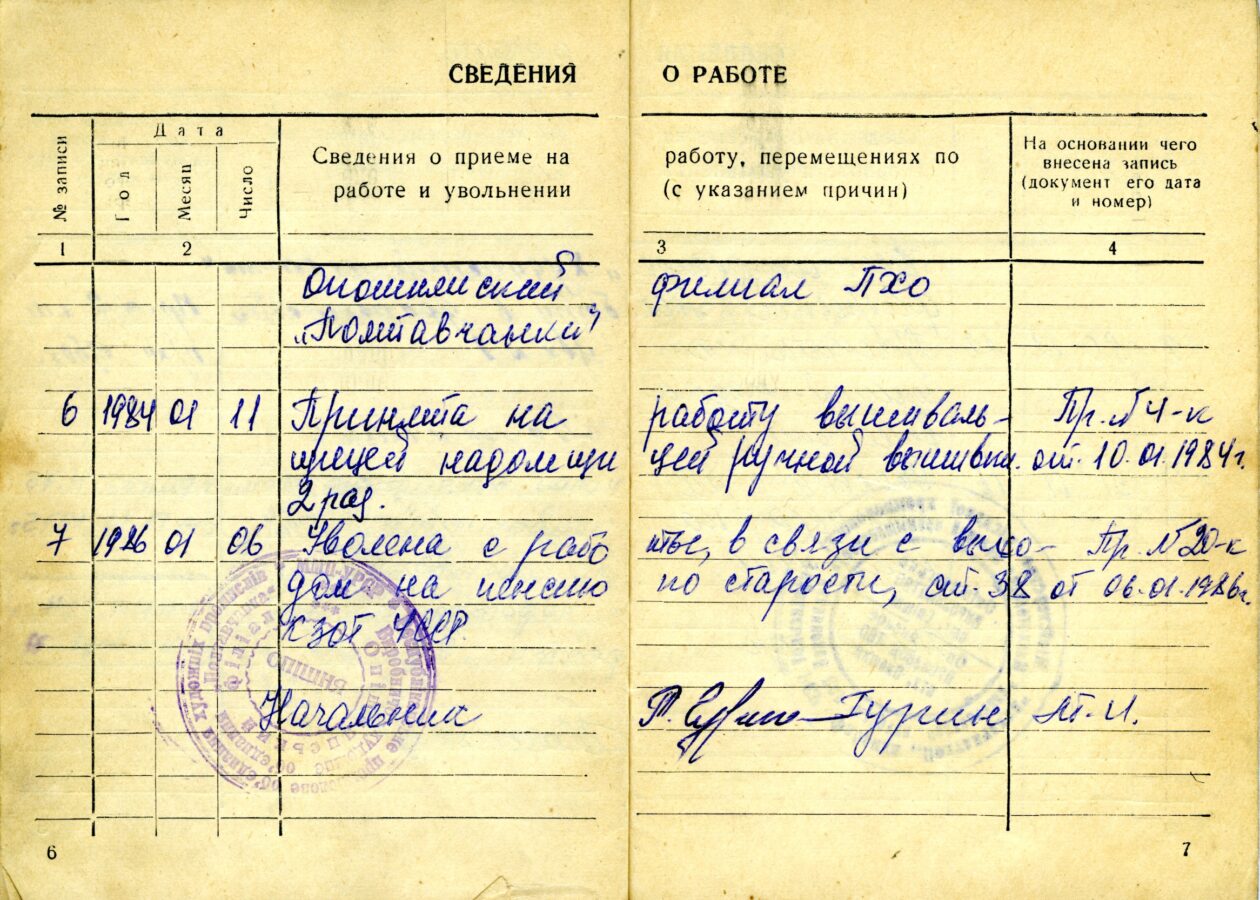 СВЕДЕНИЯ О РАБОТЕ
№ записи
Дата
Год
Месяц
Число
Сведения о приеме на работу, перемещениях по
работе и увольнении (с указанием причин)
На основании чего
внесена запись
(документ его дата
и номер)
1 2 3 4
Опошнянский филиал ПХО
„Полтавчанка"
6 1984 01 11 Принята на работу вышиваль- Пр. №4-к
щицей надомщицей ручной вышивки. от. 10.01.1984г.
2 раз.
7 1986 01 06 Уволена с работы, в связи с выхо- Пр. №20-к
дом на пенсию по старости, ст. 38 от 06.01.1986г.
КЗОТ УССР.
Начальник Гурин Т.И.
6
7